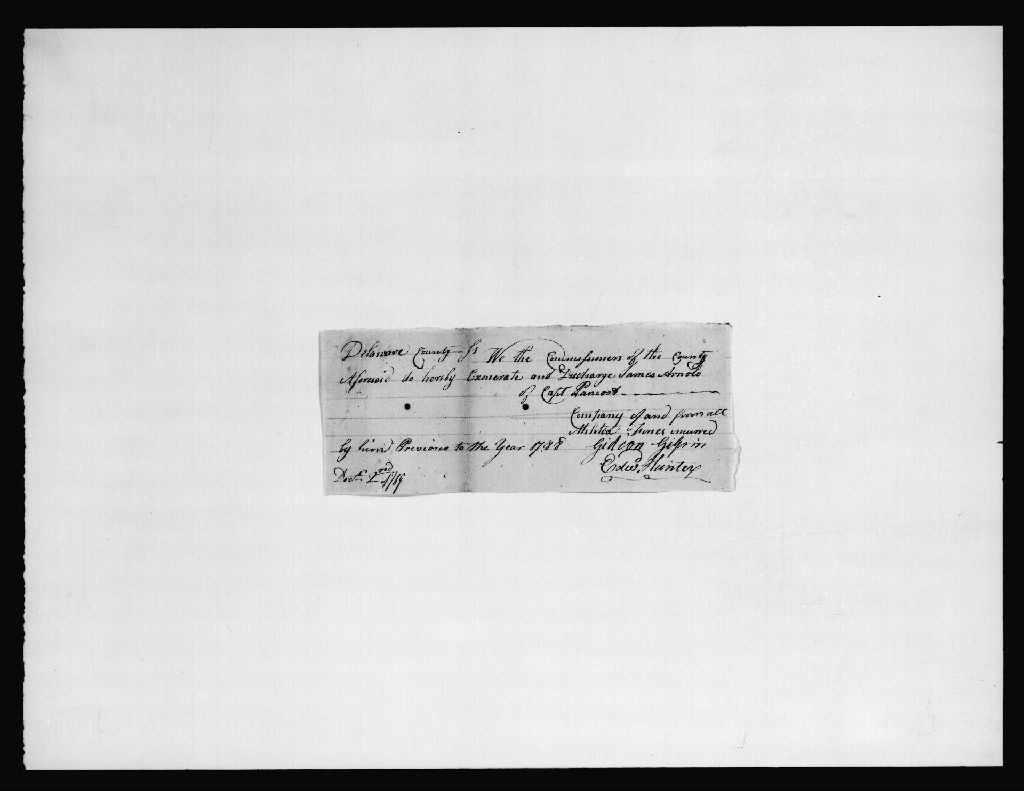 Delaware County Ss We the Commissioners of the County
Aforesaid do hereby Exonerate and Discharge James Arnold
of Capt Pancost
Company of and from all
Militia fines incurred
by him Previous to the Year 1788 Gideon Gilpin
Edwd. Hunter
Decr. 2nd 1789